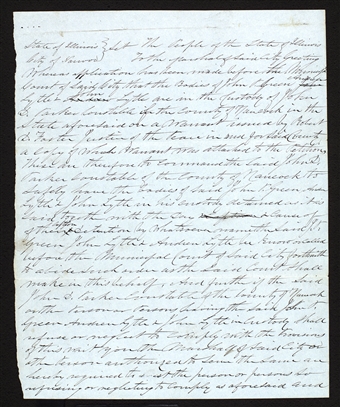 State of Illinois } Sct The People of the State of Illinois
City of Nauvoo } To the Marshal of Said City Greeting
Whereas application has been made before the Municipal
Court of Said City that the bodies of John P. Green Andrew
Lytle John Lytle are in the Custody of John
D. Parker Constable of the County of Hancock in the
State aforesaid on a Warrant issued by Robert
D. Foster Justice of the Peace in and for Said County
a Copy of which Warrant was attached to the Petition
These are therefore to Command the Said John D.
Parker Constable of the County of Hancock to
Safely have the bodies of Said John P. Green Andrew
Lytle & John Lytle in his custody detained as it is
Said together with the day & cause of
their Detention by Whatsoever name the Said P.
Green John Lytle & Andrew Lytle are known called
before the Municipal Court of Said city forthwith
to abide such order as the Said Court shall
make in this behalf, and further if the Said
John D. Parker Constable of the County of Hancock
or other Person or Persons having the Said John P.
Green Andrew Lytle & John Lytle in custody shall
refuse or neglect to comply with the Provisions
of this writ you the Marshal of Said City or
other Person authorized to serve the same are
hereby required to arrest the person or persons so
refusing or neglecting to comply as aforesaid and